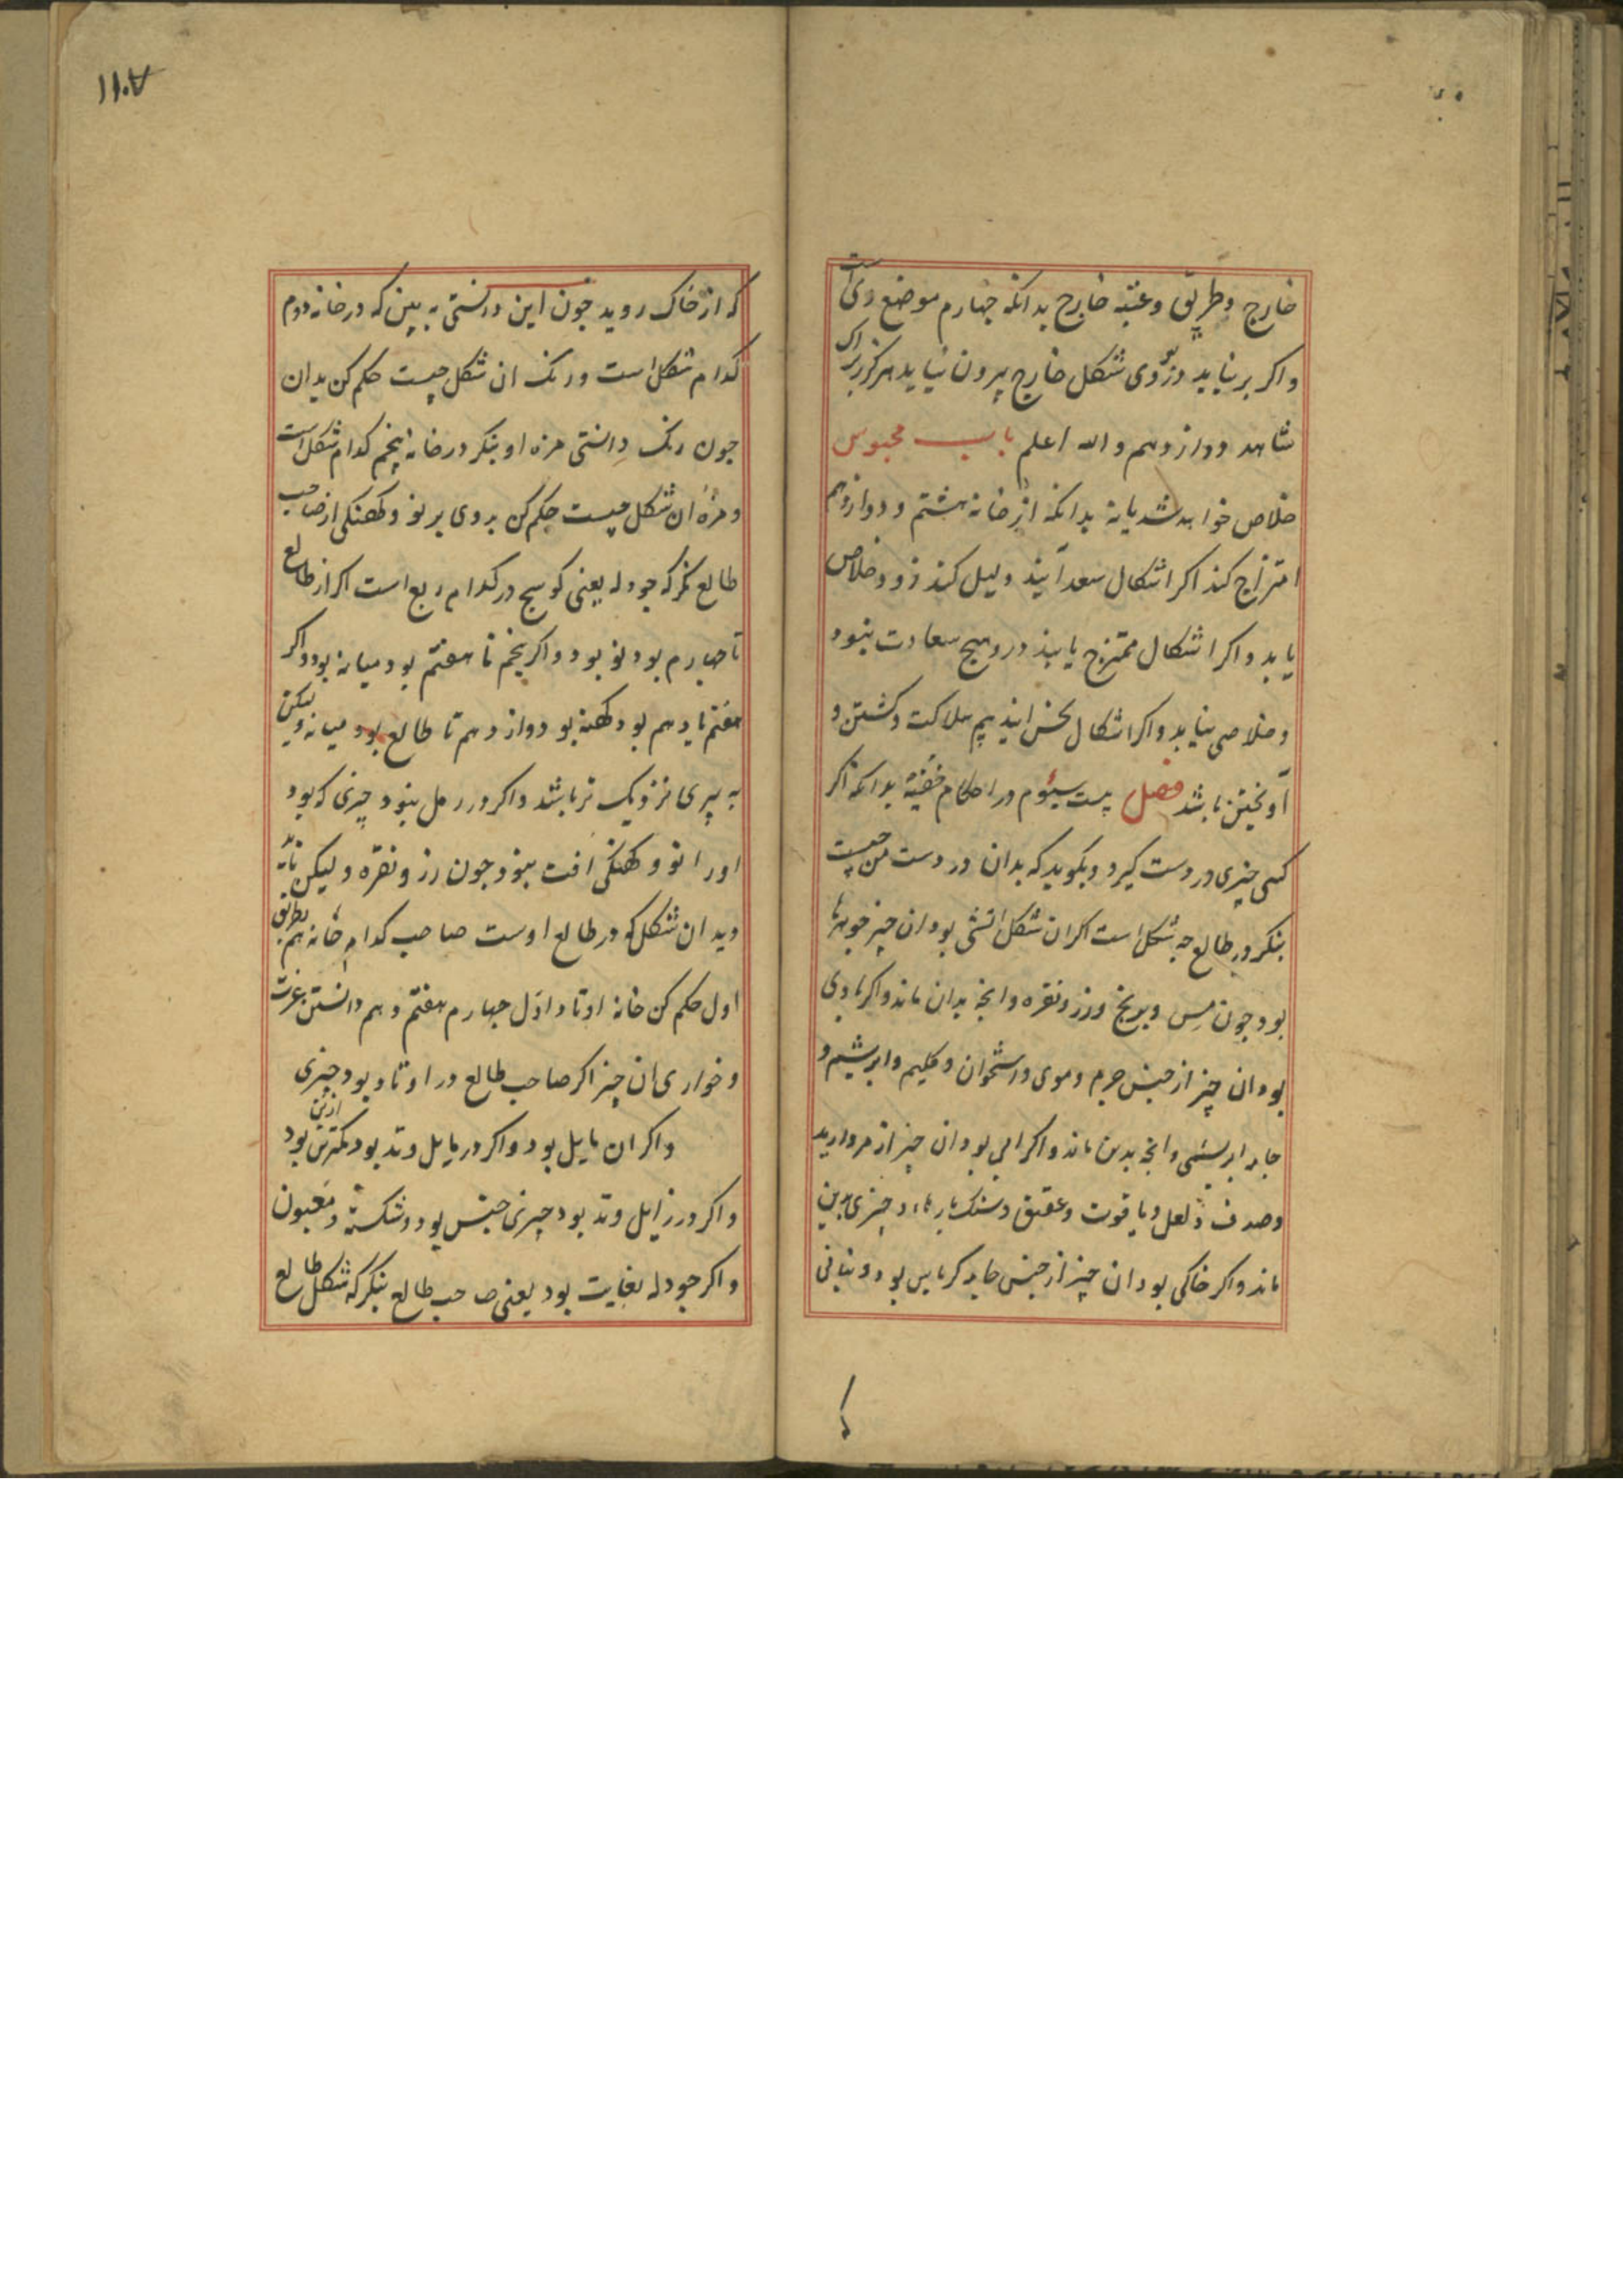 خارج و طریق و عتبه خارج بدانکه چهارم موضع وی است
واکر بر نیاید دزدی شکل خارج بیرون نیاید هرکز زیراک
شاهد دوازدهم والله اعلم باب محبوس
خلاص خواهد شد یا نه بدانکه از خانه هشتم و دوازدهم
امتزاج کند اکر اشکال سعد آیند دلیل کند زود خلاص
یابد واکر اشکال ممتزج یابند درو هیچ سعادت نبود
و خلاصی نیابد واکر اشکال نحس ایند بیم هلاکت و کشتن و
آویختن باشد فصل بیست سیئوم در احکام خفیه بدانکه اکر
کسی چیزی در دست کیرد و بکوید که بدان در دست من چیست
بنکر در طالع چه شکل است اکر ان شکل اتشی بود ان چیز جوهرها
بود چون مس و برنج و زر و نقره و انچه بدان ماند واکر بادی
بود ان چیز از جنس چرم و موی و استخوان و کلیم و ابریشم و
جامه ابریشمی و انچه بدین ماند واکر ابی بود ان چیز از مروارید
و صدف و لعل و یاقوت و عقیق و سنک پارها و چیزی بدین
ماند واکر خاکی بود ان چیز از جنس جامه کرباس بود و نباتی
که از خاک روید چون این دانستی به بین که در خانه دوم
کدام شکل است و رنک ان شکل چیست حکم کن بدان
چون رنک دانستی مزه او بنکر در خانه پنجم کدام شکل است
و مزه ان شکل چیست حکم کن بروی بر نو و کهنکی از صاحب
طالع نکر که جودله یعنی کوسج در کدام ربع است اکر از طالع
تا چهارم بود نو بود واکر پنجم تا هفتم بود میانه بود واکر
هفتم تا دهم بود کهنه بود دوازدهم تا طالع بود میانه ولیکن
به پیری نزدیک تر باشد واکر در رمل بنود چیزی که بود
اورا نو و کهنکی افت بنود چون زر و نقره ولیکن باید
دید ان شکل که در طالع اوست صاحب کدام خانه هم بطریق
اول حکم کن خانه اوتاد اول چهارم هفتم دهم دانستن عزت
و خواری ان چیز اکر صاحب طالع در اوتاد بود چیزی
واکر ان مایل بود واکر در مایل وتد بود کمترین ازین بود
واکر در زایل وتد بود چیزی خسیس بود و شکسته و معیون
واکر جودله بغایت بود یعنی صاحب طالع بنکر که شکل طالع